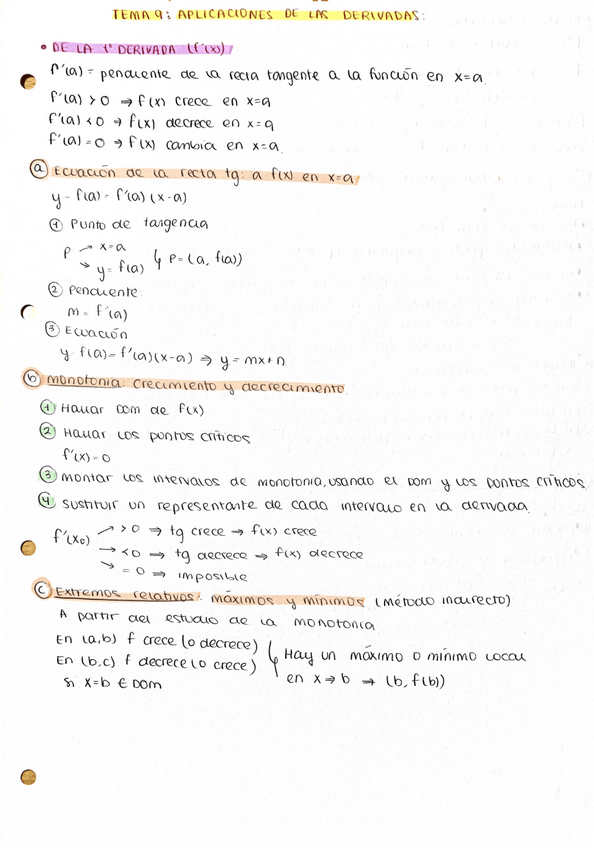 TEMA 9: APLICACIONES DE LAS DERIVADAS:
• DE LA 1ª DERIVADA (f'(x))
f'(a) = pendiente de la recta tangente a la función en x=a.
f'(a) > 0 ⇒ f(x) crece en x=a
f'(a) < 0 ⇒ f(x) decrece en x=a
f'(a) = 0 ⇒ f(x) cambia en x=a.
ⓐ Ecuación de la recta tg: a f(x) en x=a
y - f(a) = f'(a) (x-a)
① Punto de tangencia
P → x=a
→ y= f(a) P= (a, f(a))
② Pendiente:
m = f'(a)
③ Ecuación
y- f(a) = f'(a)(x-a) ⇒ y = mx+n.
ⓑ Monotonía: crecimiento y decrecimiento
① Hallar Dom de f(x)
② Hallar los puntos críticos
f'(x)=0
③ Montar los intervalos de monotonía, usando el Dom y los puntos críticos
④ Sustituir un representante de cada intervalo en la derivada.
f'(x₀) → >0 ⇒ tg crece → f(x) crece
→ <0 → tg decrece → f(x) decrece
→ =0 ⇒ imposible
ⓒ Extremos relativos: máximos y mínimos (Método indirecto)
A partir del estudio de la monotonía
En (a,b) f crece (o decrece)
En (b,c) f decrece (o crece)
Si x=b ∈ Dom
Hay un máximo o mínimo local
en x→b → (b, f(b))